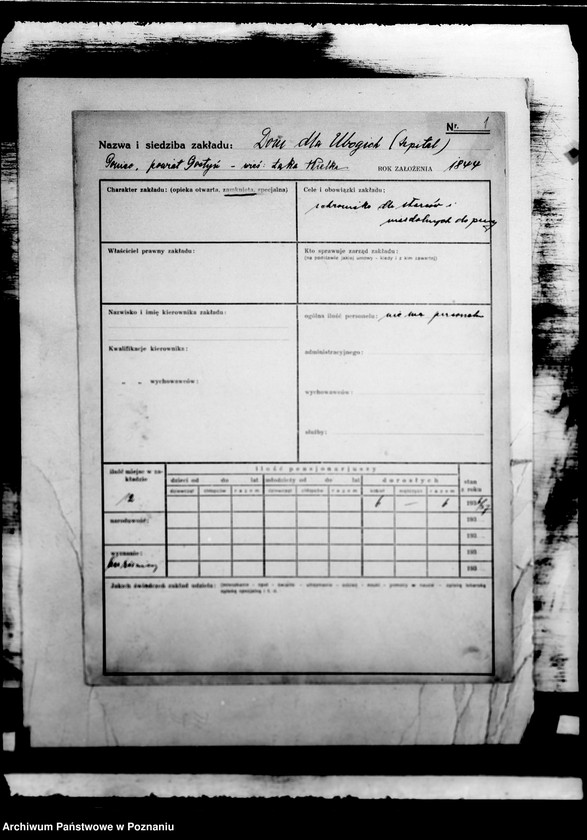 Nr. 1
Nazwa i siedziba zakładu: Dom dla Ubogich (Szpital)
powiat Gostyń - wieś Łąka Wielka ROK ZAŁOŻENIA 1844
Charakter zakładu: (opieka otwarta, zamknięta, specjalna)
Cele i obowiązki zakładu:
schronisko dla starców i
niezdolnych do pracy
Właściciel prawny zakładu:
Kto sprawuje zarząd zakładu:
(na podstawie jakiej umowy - kiedy i z kim zawartej)
Nazwisko i imię kierownika zakładu:
ogólna ilość personelu: nie ma personelu
Kwalifikacje kierownika:
administracyjnego:
„ „ wychowawców:
wychowawców:
służby:
ilość miejsc w za-
kładzie
12
ilość pensjonarjuszy
dzieci od do lat młodzieży od do lat dorosłych stan
z roku
dziewcząt chłopców razem dziewcząt chłopców razem kobiet mężczyzn razem
6 — 6 1936/37
narodowość: 193
193
wyznanie: 193
bez różnicy 193
Jakich świadczeń zakład udziela: (mieszkanie - opał - światło - utrzymanie - odzież - nauki - pomocy w nauce - opiekę lekarską
opiekę specjalną i t. d.
Archiwum Państwowe w Poznaniu